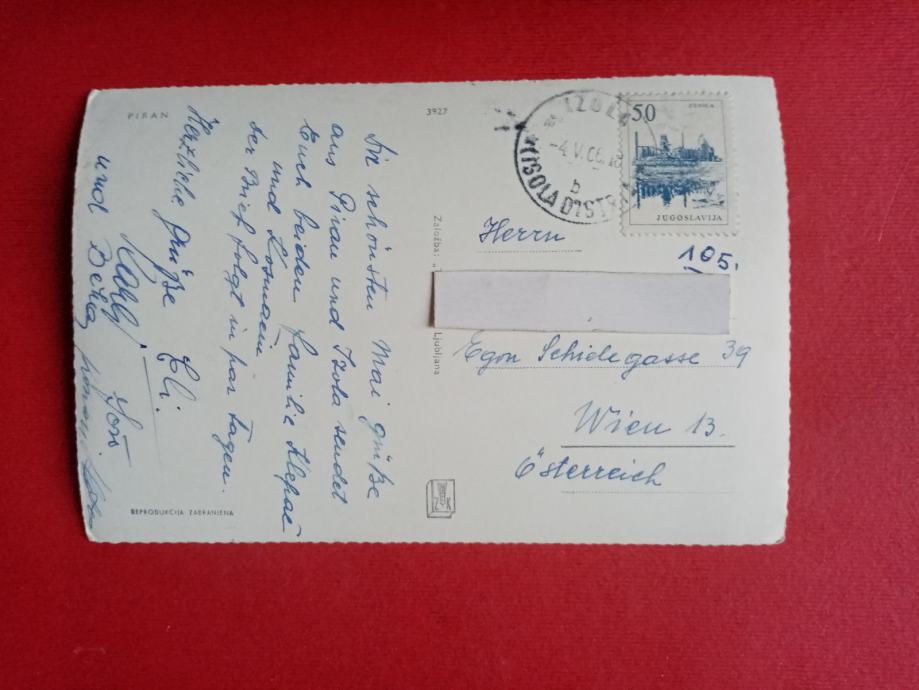 PIRAN
3927
Die schönsten Mai grüße
aus Piran und Izola sendet
Euch beiden Familie Klepač
und Kosmaein
der Brief folgt in par Tagen.
Herzliche Grüße Eli.
und
REPRODUKCIJA ZABRANJENA
Založba:
Ljubljana
ZK
IZOLA
-4.V.66.18
b
ISOLA D'ISTR
50
ZENICA
JUGOSLAVIJA
Herrn
105.
Egon Schielegasse 39
Wien 13.
Österreich